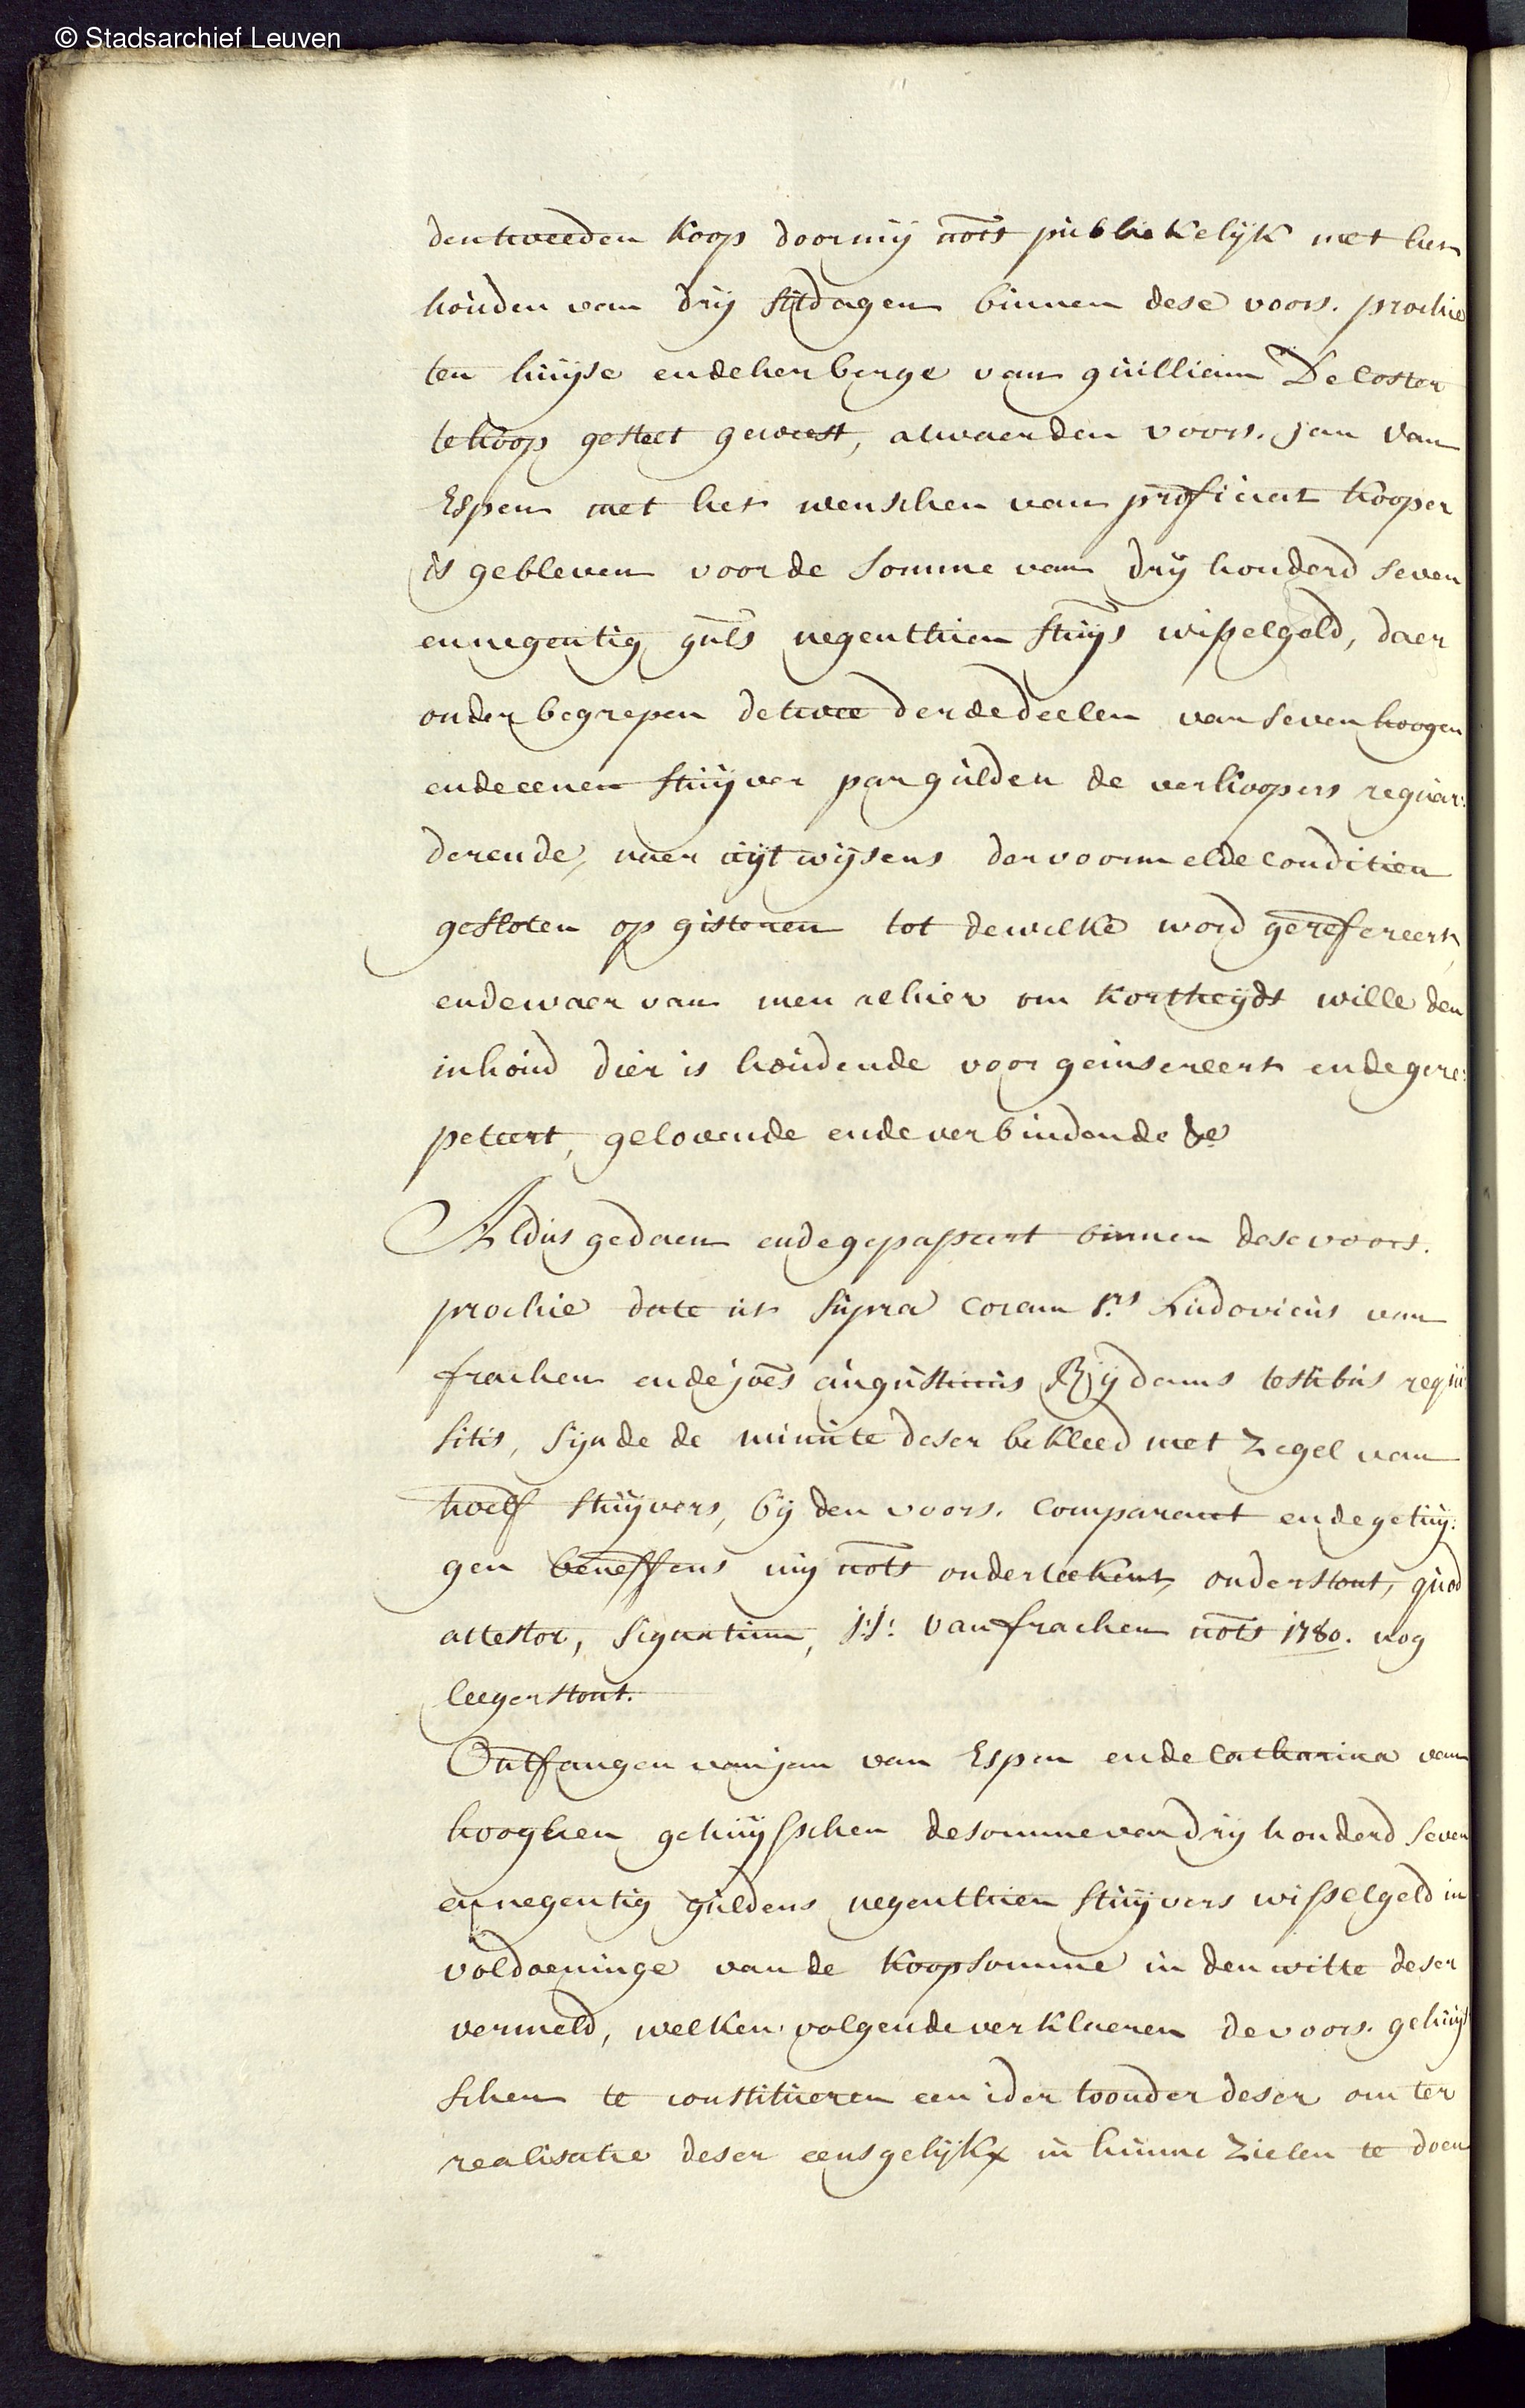 © Stadsarchief Leuven
den tweeden koop door mij nots publiekelijk met het
houden van drij sitdagen binnen dese voors. prochie
ten huijse ende herberge van guilliam De Coster
te koop gestelt geweest, alwaer den voors. jan van
Espen met het wenschen van proficiat kooper
is gebleven voor de somme van drij honderd seven
en negentig guls negenthien stuijs wisselgeld, daer
onder begrepen de twee derde deelen van seven hoogen
ende eenen stuijver par gulden de verkoopers reguar:
derende, naer uijtwijsens der voormelde conditien
gesloten op gisteren tot dewelke word gerefereert,
ende waer van men alhier om kortheijdt wille den
inhoud dier is houdende voor geinsereert ende gere:
peteert, gelovende ende verbindende &a
Aldus gedaen ende gepasseert binnen dese voors.
prochie date ut supra coram Srs Ludovicus van
frachen ende joes augustinus Rijdams testibus requi
sitis, sijnde de minute deser bekleed met zegel van
twelf stuijvers, bij den voors. comparant ende getuij:
gen beneffens mij nots onderteekent, onderstont, quod
attestor, signatum, J:J: van frachen nots 1780. nog
leeger stont.
Ontfangen van jan van Espen ende catharina van
hooghen gehuijsschen de somme van drij honderd seven
en negentig guldens negenthien stuijvers wisselgeld in
voldoeninge van de koopsomme in den witte deser
vermeld, welken volgende verklaeren de voors. gehuijs
schen te constitueren een ider toonder deser om ter
realisatie deser eensgelijkx in hunne zielen te doen